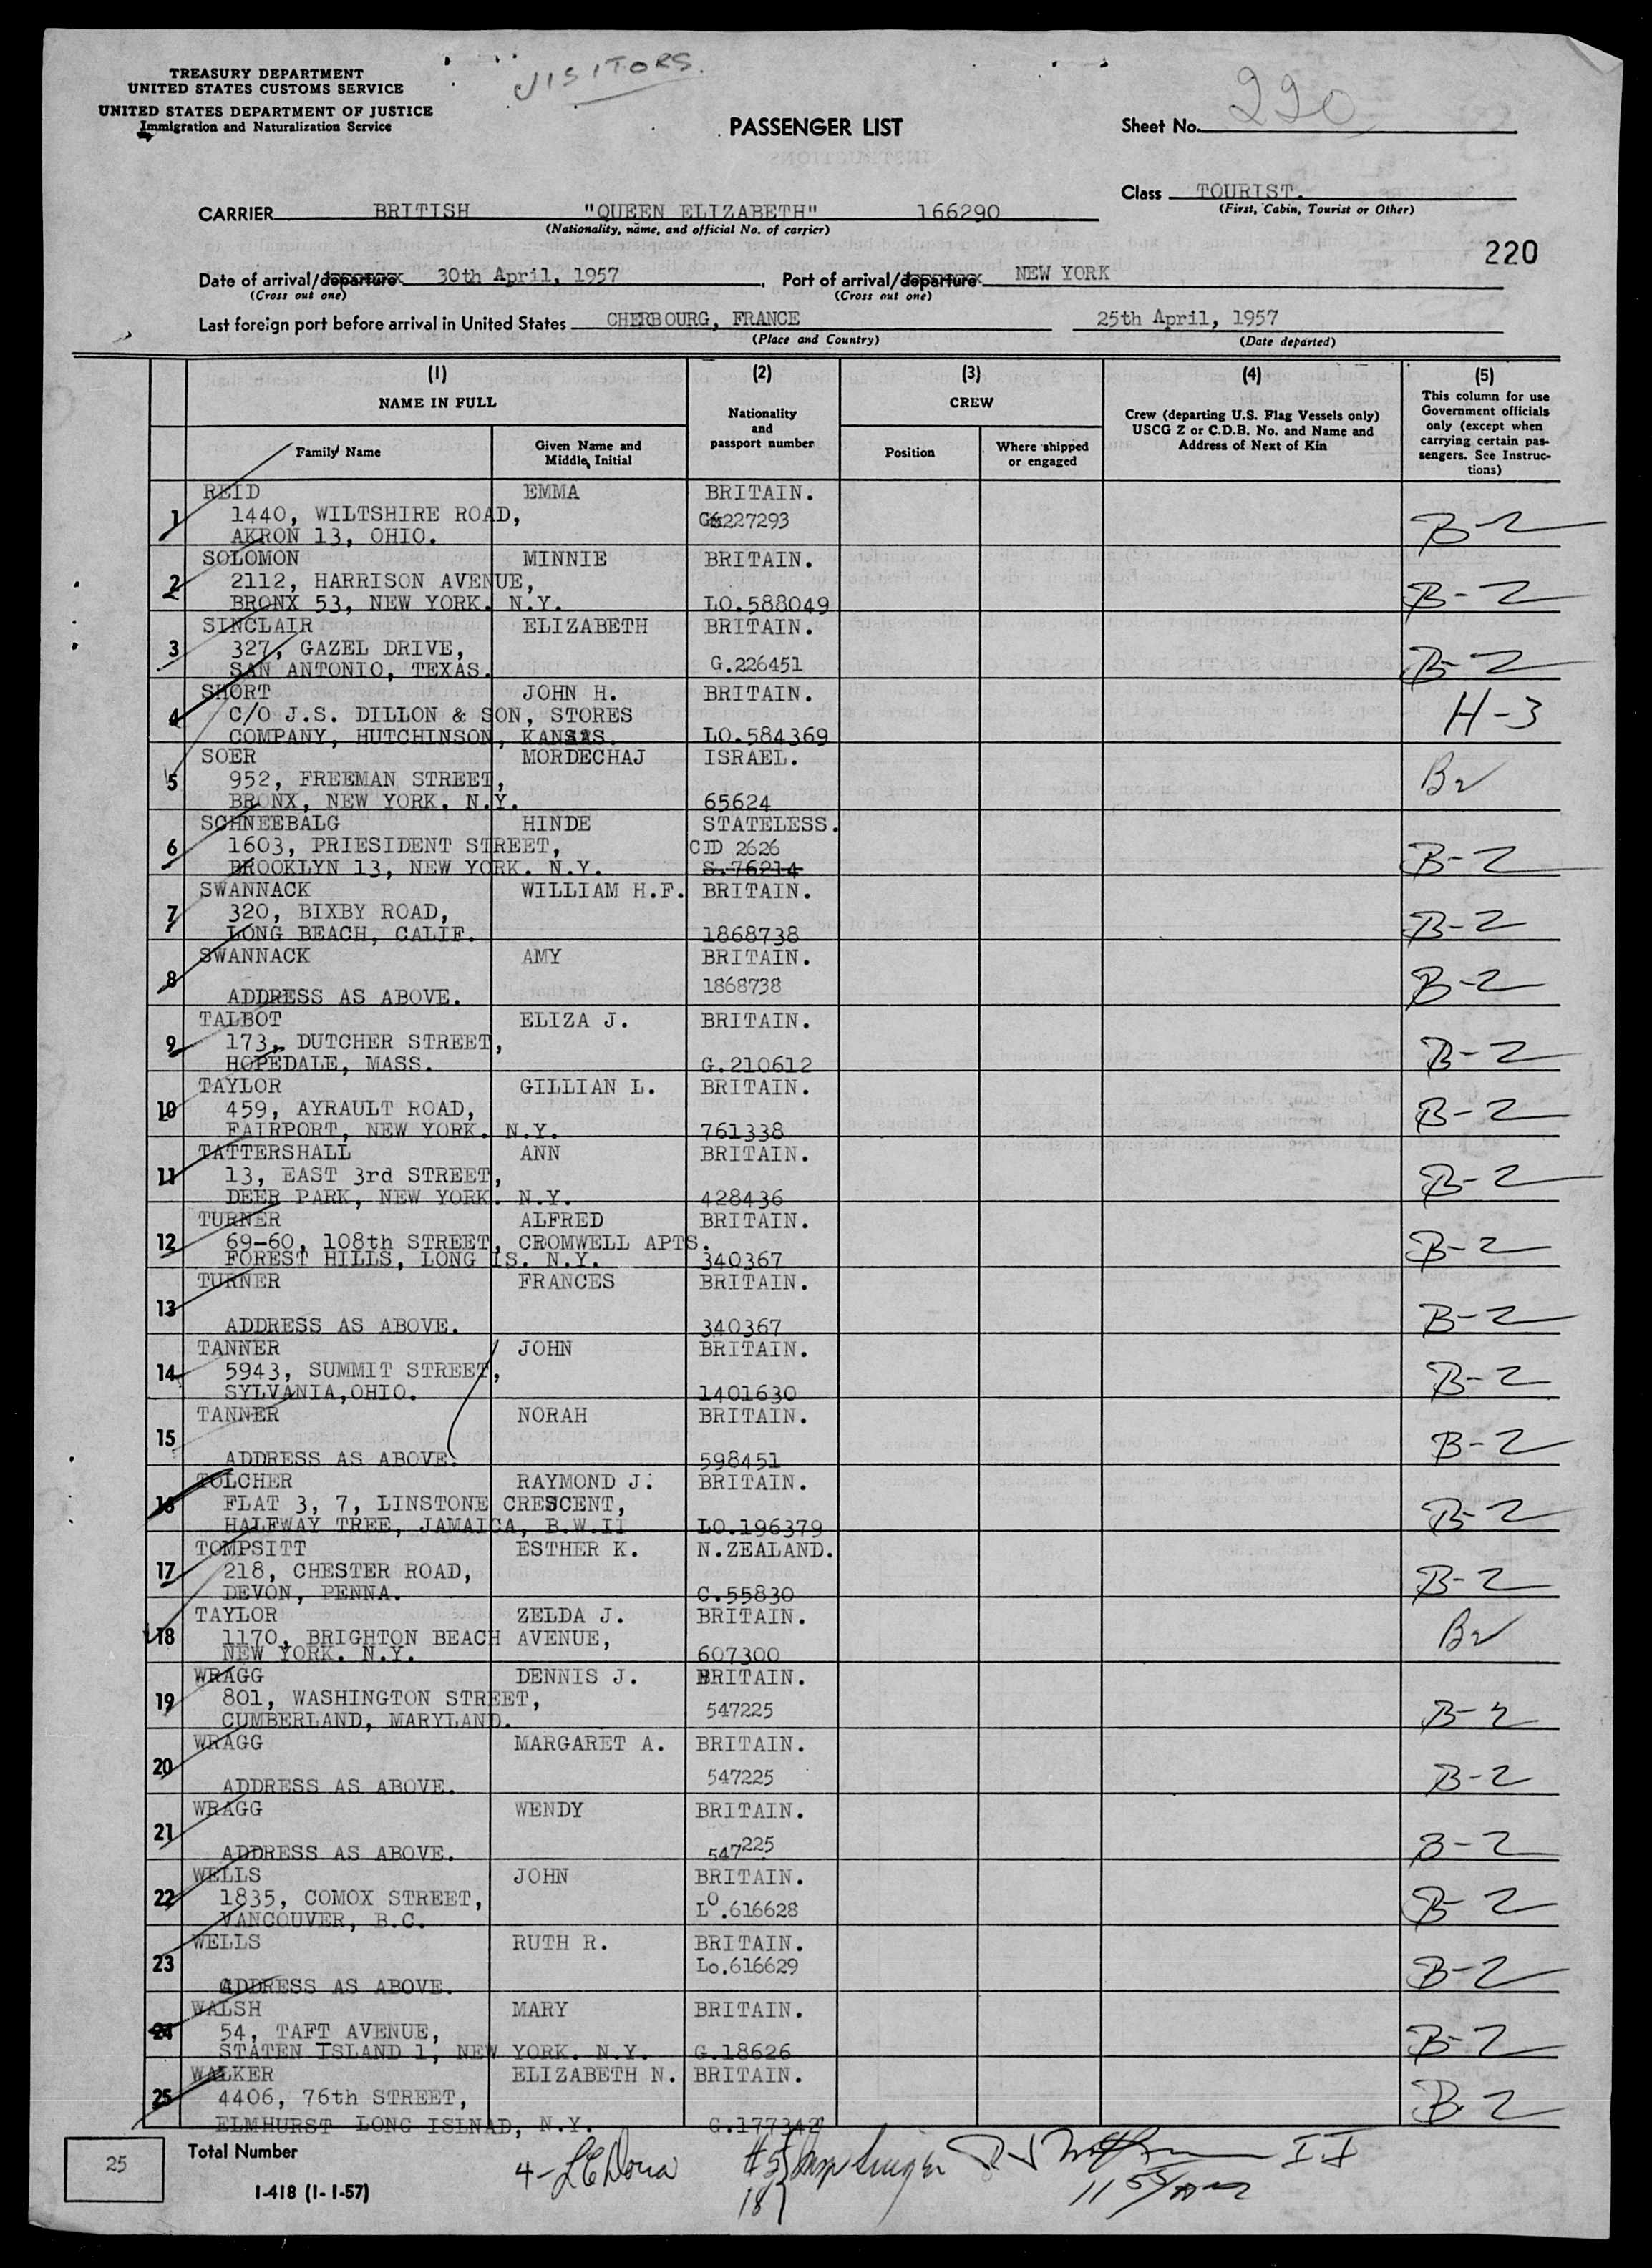 TREASURY DEPARTMENT
UNITED STATES CUSTOMS SERVICE
UNITED STATES DEPARTMENT OF JUSTICE
Immigration and Naturalization Service
VISITORS.
PASSENGER LIST
Sheet No. 220
Class TOURIST.
(First, Cabin, Tourist or Other)
CARRIER BRITISH "QUEEN ELIZABETH" 166290
(Nationality, name, and official No. of carrier)
220
Date of arrival/departure 30th April, 1957. Port of arrival/departure NEW YORK
(Cross out one) (Cross out one)
Last foreign port before arrival in United States CHERBOURG, FRANCE 25th April, 1957
(Place and Country) (Date departed)
(1) (2) (3) (4) (5)
NAME IN FULL
Nationality and passport number
CREW
Crew (departing U.S. Flag Vessels only)
USCG Z or C.D.B. No. and Name and
Address of Next of Kin
This column for use
Government officials
only (except when
carrying certain pas-
sengers. See Instruc-
tions)
Family Name
Given Name and
Middle Initial
Position
Where shipped
or engaged
1 REID EMMA BRITAIN.
1440, WILTSHIRE ROAD, G227293 B-2
AKRON 13, OHIO.
2 SOLOMON MINNIE BRITAIN.
2112, HARRISON AVENUE, B-2
BRONX 53, NEW YORK. N.Y. LO.588049
3 SINCLAIR ELIZABETH BRITAIN.
327, GAZEL DRIVE, B-2
SAN ANTONIO, TEXAS. G.226451
4 SHORT JOHN H. BRITAIN.
C/O J.S. DILLON & SON, STORES H-3
COMPANY, HUTCHINSON, KANSAS. LO.584369
5 SOER MORDECHAJ ISRAEL.
952, FREEMAN STREET, B2
BRONX, NEW YORK. N.Y. 65624
6 SCHNEEBALG HINDE STATELESS.
1603, PRIESIDENT STREET, CID 2626 B-2
BROOKLYN 13, NEW YORK. N.Y. S.76214
7 SWANNACK WILLIAM H.F. BRITAIN.
320, BIXBY ROAD, B-2
LONG BEACH, CALIF. 1868738
8 SWANNACK AMY BRITAIN.
1868738 B-2
ADDRESS AS ABOVE.
9 TALBOT ELIZA J. BRITAIN.
173, DUTCHER STREET, B-2
HOPEDALE, MASS. G.210612
10 TAYLOR GILLIAN L. BRITAIN.
459, AYRAULT ROAD, B-2
FAIRPORT, NEW YORK. N.Y. 761338
11 TATTERSHALL ANN BRITAIN.
13, EAST 3rd STREET, B-2
DEER PARK, NEW YORK. N.Y. 428436
12 TURNER ALFRED BRITAIN.
69-60, 108th STREET, CROMWELL APTS. B-2
FOREST HILLS, LONG IS. N.Y. 340367
13 TURNER FRANCES BRITAIN.
B-2
ADDRESS AS ABOVE. 340367
14 TANNER JOHN BRITAIN.
5943, SUMMIT STREET, B-2
SYLVANIA,OHIO. 1401630
15 TANNER NORAH BRITAIN.
B-2
ADDRESS AS ABOVE. 598451
16 TOLCHER RAYMOND J. BRITAIN.
FLAT 3, 7, LINSTONE CRESCENT, B-2
HALFWAY TREE, JAMAICA, B.W.II LO.196379
17 TOMPSITT ESTHER K. N.ZEALAND.
218, CHESTER ROAD, B-2
DEVON, PENNA. C.55830
18 TAYLOR ZELDA J. BRITAIN.
1170, BRIGHTON BEACH AVENUE, B2
NEW YORK. N.Y. 607300
19 WRAGG DENNIS J. BRITAIN.
801, WASHINGTON STREET, 547225 B-2
CUMBERLAND, MARYLAND.
20 WRAGG MARGARET A. BRITAIN.
547225 B-2
ADDRESS AS ABOVE.
21 WRAGG WENDY BRITAIN.
547225 B-2
ADDRESS AS ABOVE.
22 WELLS JOHN BRITAIN.
1835, COMOX STREET, LO.616628 B-2
VANCOUVER, B.C.
23 WELLS RUTH R. BRITAIN.
Lo.616629 B-2
ADDRESS AS ABOVE.
24 WALSH MARY BRITAIN.
54, TAFT AVENUE, B-2
STATEN ISLAND 1, NEW YORK. N.Y. G.18626
25 WALKER ELIZABETH N. BRITAIN.
4406, 76th STREET, B-2
ELMHURST LONG ISLNAD, N.Y. G.177342
25 Total Number
I-418 (1-1-57)